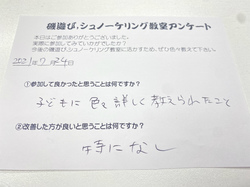 磯遊び、シュノーケリング教室アンケート
本日はご参加ありがとうございました。
実際に参加してみていかがでしたか？
今後の磯遊び、シュノーケリング教室に活かすため、ぜひ色々教えて下さい。
2021年7月24日
①参加して良かったと思うことは何ですか？
子どもに色々詳しく教えられたこと
②改善した方が良いと思うことは何ですか？
特になし